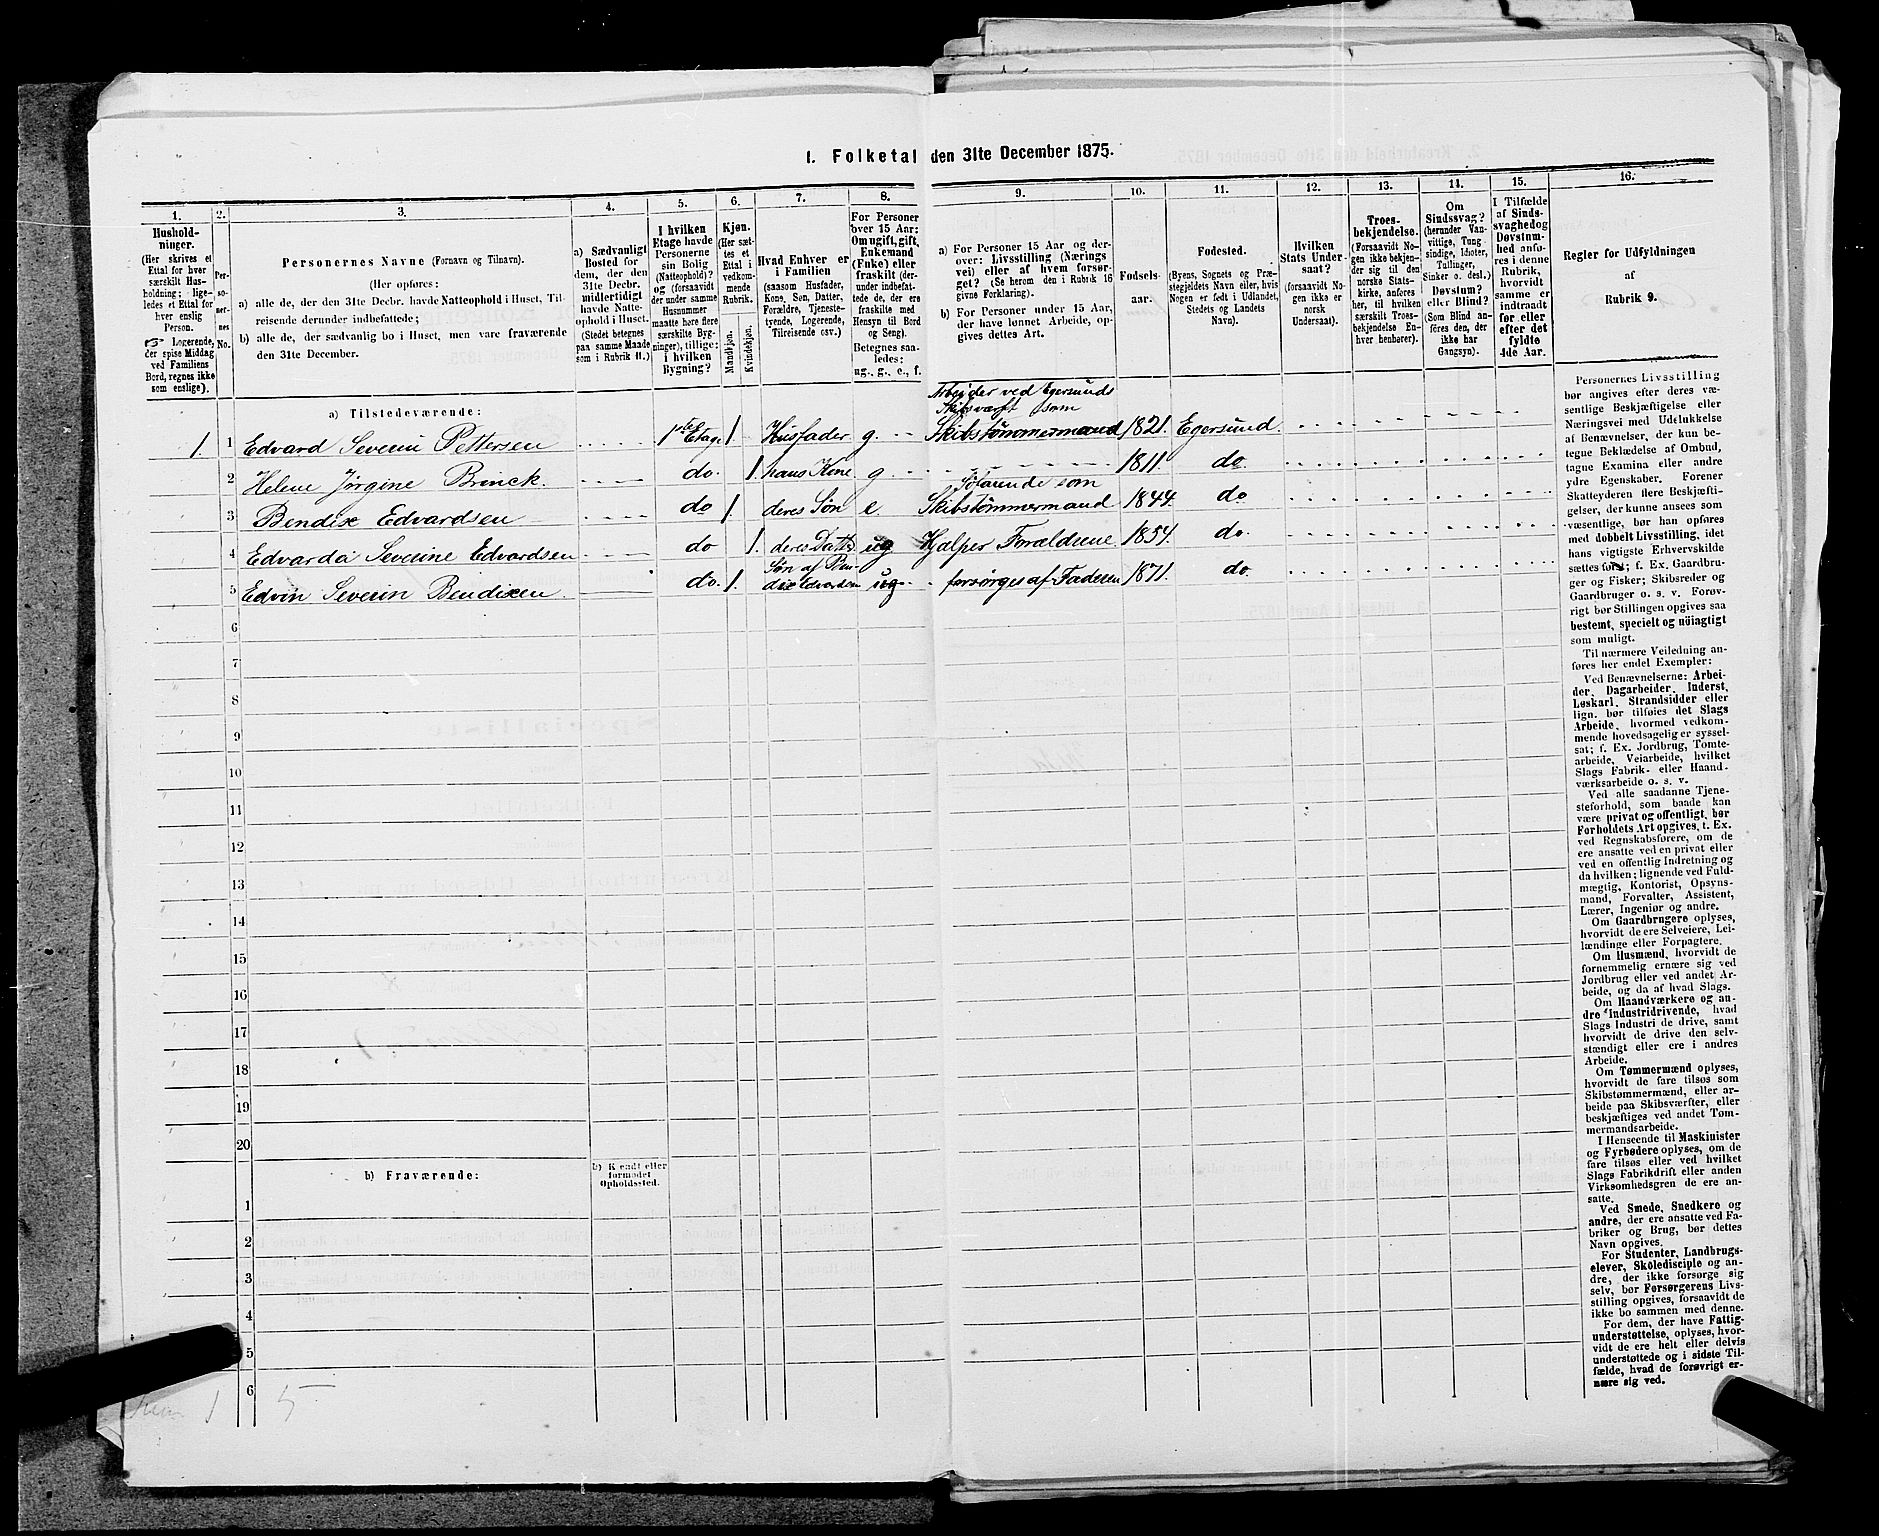 1. Folketal den 31te December 1875.
1. 2. 3. 4. 5. 6. 7. 8. 9. 10. 11. 12. 13. 14. 15. 16.
Hushold-
ninger.
(Her skrives et
Ettal for hver
særskilt Hus-
holdning; lige-
ledes et Ettal for
hver enslig
Person.
☞ Logerende,
der spise Middag
ved Familiens
Bord, regnes ikke
som enslige).
Per-
so-
ner-
nes
No.
Personernes Navne (Fornavn og Tilnavn).
(Her opføres:
a) alle de, der den 31te Decbr. havde Natteophold i Huset, Til-
reisende derunder indbefattede;
b) alle de, der sædvanlig bo i Huset, men vare fraværende
den 31te December.
a) Sædvanligt
Bosted for
dem, der den
31te Decbr.
midlertidigt
havde Natte-
ophold i Huset.
(Stedet betegnes
paa samme Maade
som i Rubrik 11.)
I hvilken
Etage havde
Personerne
sin Bolig
(Natteophold)?
og (forsaavidt
der under samme
Husnummer
maatte høre flere
særskilte Byg-
ninger), tillige:
i hvilken
Bygning?
Kjøn.
(Her sæt-
tes et
Ettal i
vedkom-
mende
Rubrik.
Mandkjøn.
Kvindekjøn.
Hvad Enhver er
i Familien
(saasom Husfader,
Kone, Søn, Datter,
Forældre, Tjeneste-
tyende, Logerende,
Tilreisende osv.)
For Personer
over 15 Aar:
Om ugift, gift,
Enkemand
(Enke) eller
fraskilt (der-
under indbefat-
tede de, der ere
fraskilte med
Hensyn til Bord
og Seng).
Betegnes saa-
ledes:
ug., g., e., f.
a) For Personer 15 Aar og der-
over: Livsstilling (Nærings
vei) eller af hvem forsør-
get? (Se herom den i Rubrik 16
givne Forklaring).
b) For Personer under 15 Aar,
der have lønnet Arbeide, op-
gives dettes Art.
Fødsels-
aar.
Fødested.
(Byens, Sognets og Præ-
stegjeldets Navn eller, hvis
Nogen er født i Udlandet,
Stedets og Landets
Navn).
Hvilken
Stats Under-
saat?
(forsaavidt No-
gen ikke er
norsk
Undersaat).
Troes-
bekjendelse.
(Forsaavidt No-
gen ikke bekjen-
der sig til den
norske Stats-
kirke, anføres
her, til hvilken
særskilt Troes-
bekjendelse En-
hver henhører).
Om
Sindssvag?
(herunder Van-
vittige, Tung
sindige, Idioter,
Tullinger,
Sinker o. desl.)
Døvstum?
eller Blind?
(Som Blind an-
føres den, der
ikke har
Gangsyn).
I Tilfælde
af Sinds-
svaghed og
Døvstum-
hed anfø-
res i denne
Rubrik,
hvorvidt
samme er
indtraadt
før eller
efter det
fyldte
4de Aar.
Regler for Udfyldningen
af
Rubrik 9.
a) Tilstedeværende:
Arbeider ved Egersunds
Skibsværft som
1 1 Edvard Severin Pettersen 1ste Etage 1. Husfader g. Skibstømmermand 1821. Egersund.
2 Helene Jørgine Brinck. do. 1. hans Kone g 1811. do.
Søfarende som
3 Bendix Edvardsen do 1. deres Søn e. Skibstømmermand 1844. do
4 Edvarda Severine Edvardsen do 1. deres Datter ug Hjelper Forældrene 1854. do.
Søn af Ben-
5 Edvin Severin Bendixen. do. 1. dix Edvardsen ug forsørges af Faderen 1871. do.
6
7
8
9
10
11
12
13
14
15
16
17
18
19
20
b) Fraværende: b) Kjendt eller
formodet
Opholdssted.
1
2
3
4
5
6
1 5
Personernes Livsstilling
bør angives efter deres væ-
sentlige Beskjæftigelse eller
Næringsvei med Udelukkelse
af Benævnelser, der kun be-
tegne Beklædelse af Ombud,
tagne Examina eller andre
ydre Egenskaber. Forener
Skatteyderen flere Beskjæfti-
gelser, der kunne ansees som
væsentlige, bør han opføres
med dobbelt Livsstilling, idet
hans vigtigste Erhvervskilde
sættes først; f. Ex. Gaardbru-
ger og Fisker; Skibsreder og
Gaardbruger o. s. v. Forøv-
rigt bør Stillingen opgives saa
bestemt, specielt og nøiagtigt
som muligt.
Til nærmere Veiledning an-
føres her endel Exempler:
Ved Benævnelserne: Arbei-
der, Dagarbeider, Inderst,
Løskarl, Strandsidder eller
lign. bør tilføies det Slags
Arbeide, hvormed vedkom-
mende hovedsagelig er syssel-
sat; f. Ex. Jordbrug, Tomte-
arbeide, Veiarbeide, hvilket
Slags Fabrik- eller Haand-
værksarbeide o. s. v.
Ved alle saadanne Tjene-
steforhold, som baade kan
være privat og offentligt, bør
Forholdets Art opgives, t. Ex.
ved Regnskabsførere, om de
ere ansatte ved en privat eller
ved en offentlig Indretning og
da hvilken; lignende ved Fuld-
mægtig, Kontorist, Opsyns-
mand, Forvalter, Assistent,
Lærer, Ingeniør og andre.
Om Gaardbrugere oplyses,
hvorvidt de ere Selveiere, Lei-
lændinge eller Forpagtere.
Om Husmænd, hvorvidt de
fornemmelig ernære sig ved
Jordbrug eller ved andet Ar-
beide, og da af hvad Slags.
Om Haandværkere og an-
dre Industridrivende, hvad
Slags Industri de drive, samt
hvorvidt de drive den selv-
stændigt eller ere i andres
Arbeide.
Om Tømmermænd oplyses,
hvorvidt de fare tilsøs som
Skibstømmermænd, eller ar-
beide paa Skibsværfter, eller
beskjæftiges ved andet Tøm-
mermandsarbeide.
I Henseende til Maskinister
og Fyrbødere oplyses, om de
fare tilsøs eller ved hvilket
Slags Fabrikdrift eller anden
Virksomhedsgren de ere an-
satte.
Ved Smede, Snedkere og
andre, der ere ansatte ved Fa-
briker og Brug, bør dettes
Navn opgives.
For Studenter, Landbrugs-
elever, Skoledisciple og an-
dre, der ikke forsørge sig
selv, bør Forsørgerens Livs-
stilling opgives, forsaavidt de
ikke bo sammen med denne.
For dem, der have Fattig-
understøttelse, oplyses, hvor-
vidt de ere helt eller delvis
understøttede og i sidste Til-
fælde, hvad de forøvrigt er-
nære sig ved.